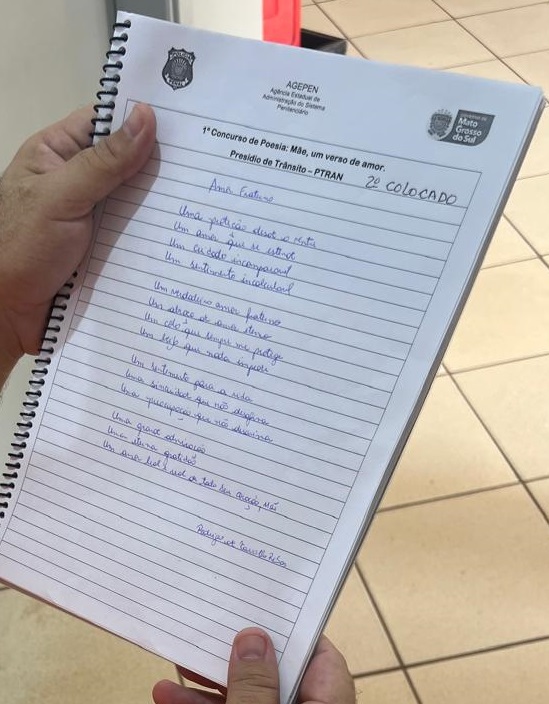 POLÍCIA
PENAL
AGEPEN
Agência Estadual de
Administração do Sistema
Penitenciário
Mato
Grosso
do Sul
1º Concurso de Poesia: Mãe, um verso de amor.
Presídio de Trânsito – PTRAN
2º COLOCADO
Amor Fraterno
Uma proteção
Um amor que se
Um cuidado incomparável
Um sentimento incalculável
Um verdadeiro amor fraterno
Um abraço de amor eterno
Um colo que sempre me protege
Um beijo que nada impede
Um sentimento para a vida
Uma que não
Uma preocupação que não
Uma grande admiração
Uma eterna gratidão
Um amor de todo seu coração, Mãe